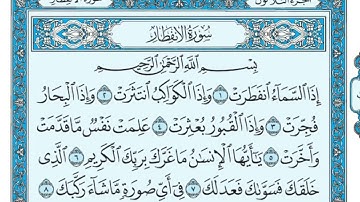 سورة الانفطار الجزء الثلاثون
سُورَةُ الانفِطَارِ
بِسْمِ اللَّهِ الرَّحْمَٰنِ الرَّحِيمِ
إِذَا السَّمَاءُ انفَطَرَتْ ١ وَإِذَا الْكَوَاكِبُ انتَثَرَتْ ٢ وَإِذَا الْبِحَارُ
فُجِّرَتْ ٣ وَإِذَا الْقُبُورُ بُعْثِرَتْ ٤ عَلِمَتْ نَفْسٌ مَّا قَدَّمَتْ
وَأَخَّرَتْ ٥ يَٰأَيُّهَا الْإِنسَٰنُ مَا غَرَّكَ بِرَبِّكَ الْكَرِيمِ ٦ الَّذِى
خَلَقَكَ فَسَوَّىٰكَ فَعَدَلَكَ ٧ فِىٓ أَىِّ صُورَةٍ مَّا شَآءَ رَكَّبَكَ ٨